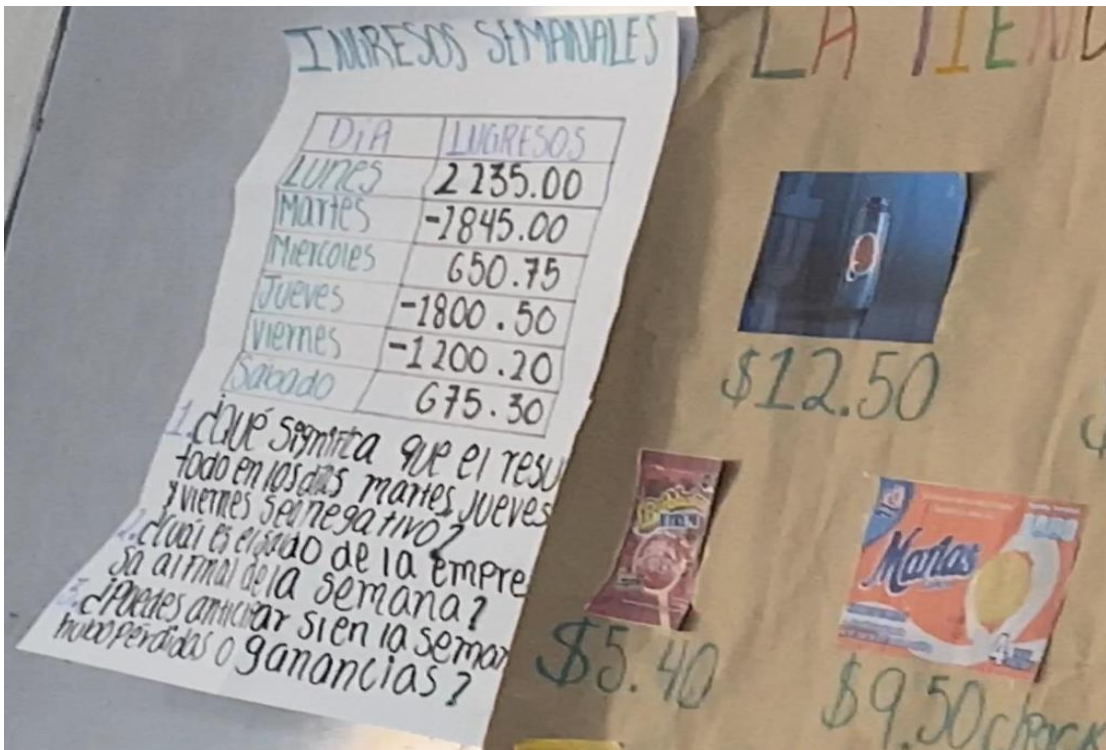 INGRESOS SEMANALES
DÍA INGRESOS
Lunes 2235.00
Martes -2845.00
Miercoles 650.75
Jueves -1800.50
Viernes -1200.20
Sabado 675.30
1. ¿Qué significa que el resu
tado en los días martes, jueves
y viernes sea negativo?
2. ¿Cuál es el saldo de la empre
sa al final de la semana?
3. ¿Puedes anticipar si en la seman
hubo pérdidas o ganancias?
LA TIEND
$12.50
$5.40
Marías
$9.50